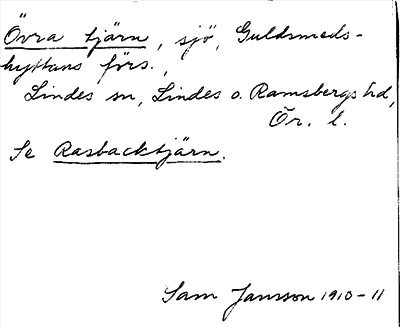 Övra tjärn, sjö, Guldsmeds-
hyttans förs.,
Lindes sn, Lindes o. Ramsbergs hd,
Ör. l.
Se Rasbacktjärn.
Sam Jansson 1910-11